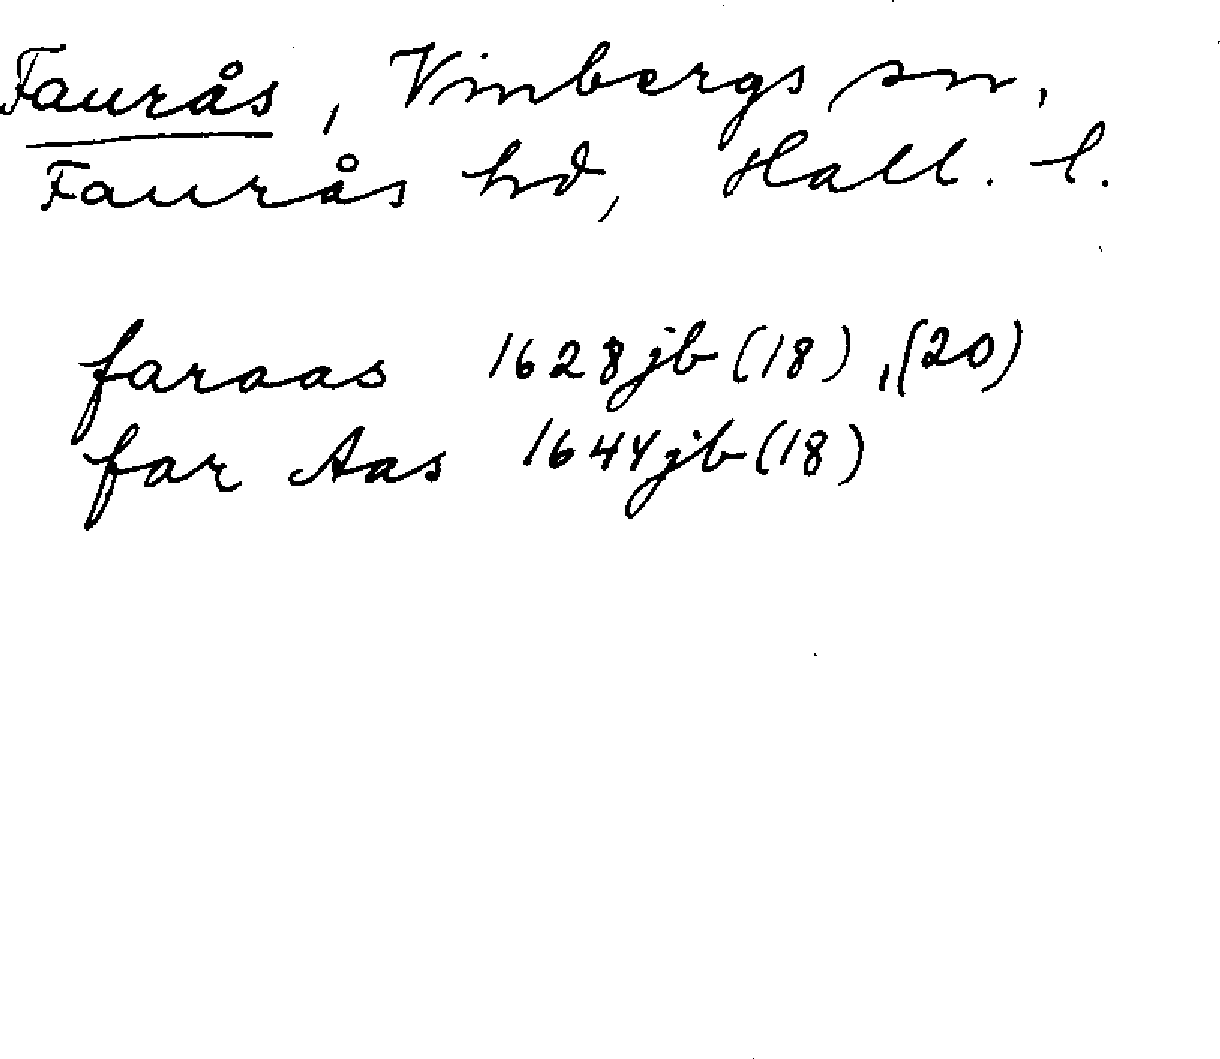 Faurås, Vinbergs sn,
Faurås hd, Hall. l.
faraas 1628jb(18), (20)
far Aas 1644jb(18)